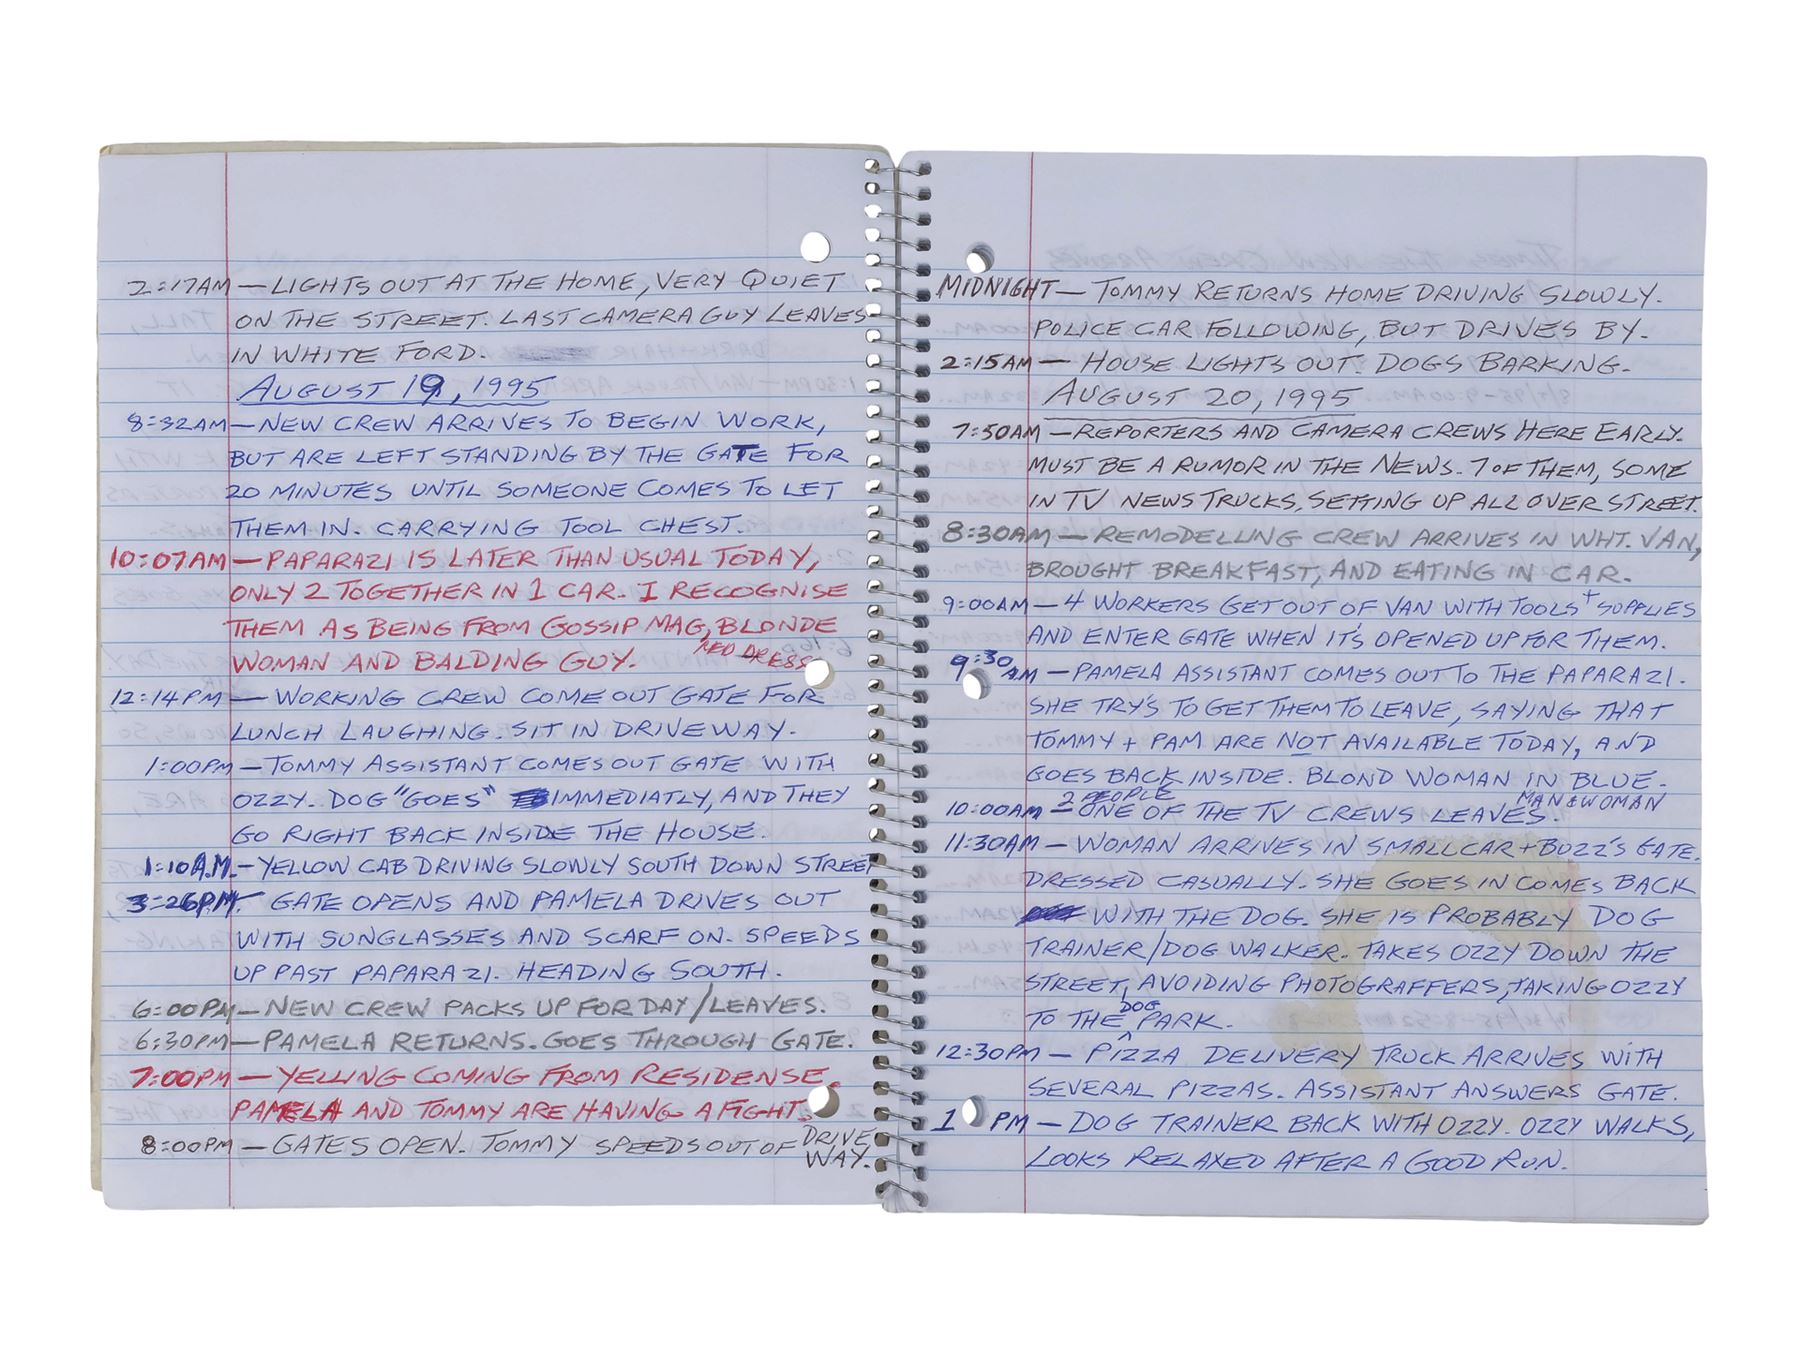 2:17AM — LIGHTS OUT AT THE HOME, VERY QUIET
ON THE STREET. LAST CAMERA GUY LEAVES
IN WHITE FORD.
AUGUST 19, 1995
8:32AM — NEW CREW ARRIVES TO BEGIN WORK,
BUT ARE LEFT STANDING BY THE GATE FOR
20 MINUTES UNTIL SOMEONE COMES TO LET
THEM IN. CARRYING TOOL CHEST.
10:07AM — PAPARAZI IS LATER THAN USUAL TODAY,
ONLY 2 TOGETHER IN 1 CAR. I RECOGNISE
THEM AS BEING FROM GOSSIP MAG, BLONDE
RED DRESS
WOMAN AND BALDING GUY.
12:14PM — WORKING CREW COME OUT GATE FOR
LUNCH LAUGHING. SIT IN DRIVEWAY.
1:00PM — TOMMY ASSISTANT COMES OUT GATE WITH
OZZY. DOG "GOES" IMMEDIATLY, AND THEY
GO RIGHT BACK INSIDE THE HOUSE.
1:10A.M. — YELLOW CAB DRIVING SLOWLY SOUTH DOWN STREET
3:26PM — GATE OPENS AND PAMELA DRIVES OUT
WITH SUNGLASSES AND SCARF ON. SPEEDS
UP PAST PAPARAZI. HEADING SOUTH.
6:00PM — NEW CREW PACKS UP FOR DAY/LEAVES.
6:30PM — PAMELA RETURNS. GOES THROUGH GATE.
7:00PM — YELLING COMING FROM RESIDENSE.
PAMELA AND TOMMY ARE HAVING A FIGHT.
8:00PM — GATES OPEN. TOMMY SPEEDS OUT OF DRIVE
WAY.
MIDNIGHT — TOMMY RETURNS HOME DRIVING SLOWLY.
POLICE CAR FOLLOWING, BUT DRIVES BY.
2:15AM — HOUSE LIGHTS OUT. DOGS BARKING.
AUGUST 20, 1995
7:50AM — REPORTERS AND CAMERA CREWS HERE EARLY.
MUST BE A RUMOR IN THE NEWS. 7 OF THEM, SOME
IN TV NEWS TRUCKS, SETTING UP ALL OVER STREET.
8:30AM — REMODELLING CREW ARRIVES IN WHT. VAN,
BROUGHT BREAKFAST, AND EATING IN CAR.
9:00AM — 4 WORKERS GET OUT OF VAN WITH TOOLS + SUPPLIES
AND ENTER GATE WHEN IT'S OPENED UP FOR THEM.
9:30AM — PAMELA ASSISTANT COMES OUT TO THE PAPARAZI.
SHE TRY'S TO GET THEM TO LEAVE, SAYING THAT
TOMMY + PAM ARE NOT AVAILABLE TODAY, AND
GOES BACK INSIDE. BLOND WOMAN IN BLUE.
2 PEOPLE MAN & WOMAN
10:00AM — ONE OF THE TV CREWS LEAVES.
11:30AM — WOMAN ARRIVES IN SMALL CAR + BUZZ'S GATE.
DRESSED CASUALLY. SHE GOES IN COMES BACK
WITH THE DOG. SHE IS PROBABLY DOG
TRAINER/DOG WALKER. TAKES OZZY DOWN THE
STREET, AVOIDING PHOTOGRAFFERS, TAKING OZZY
TO THE DOG PARK.
12:30PM — PIZZA DELIVERY TRUCK ARRIVES WITH
SEVERAL PIZZAS. ASSISTANT ANSWERS GATE.
1 PM — DOG TRAINER BACK WITH OZZY. OZZY WALKS,
LOOKS RELAXED AFTER A GOOD RUN.